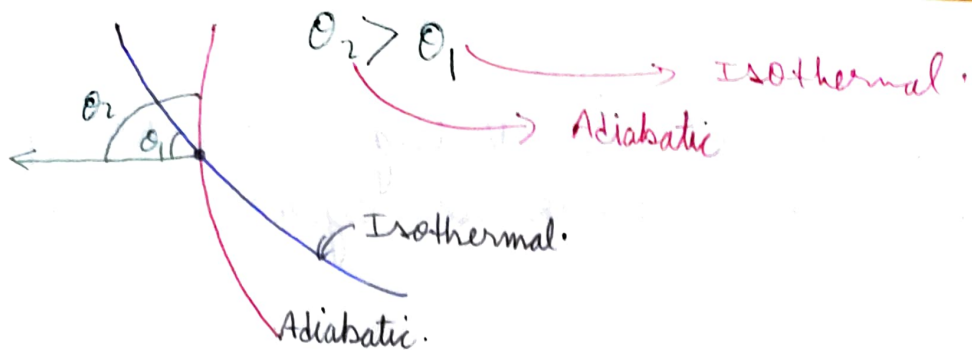 θ₂ > θ₁
Isothermal.
Adiabatic
θ₂
θ₁
Isothermal.
Adiabatic.